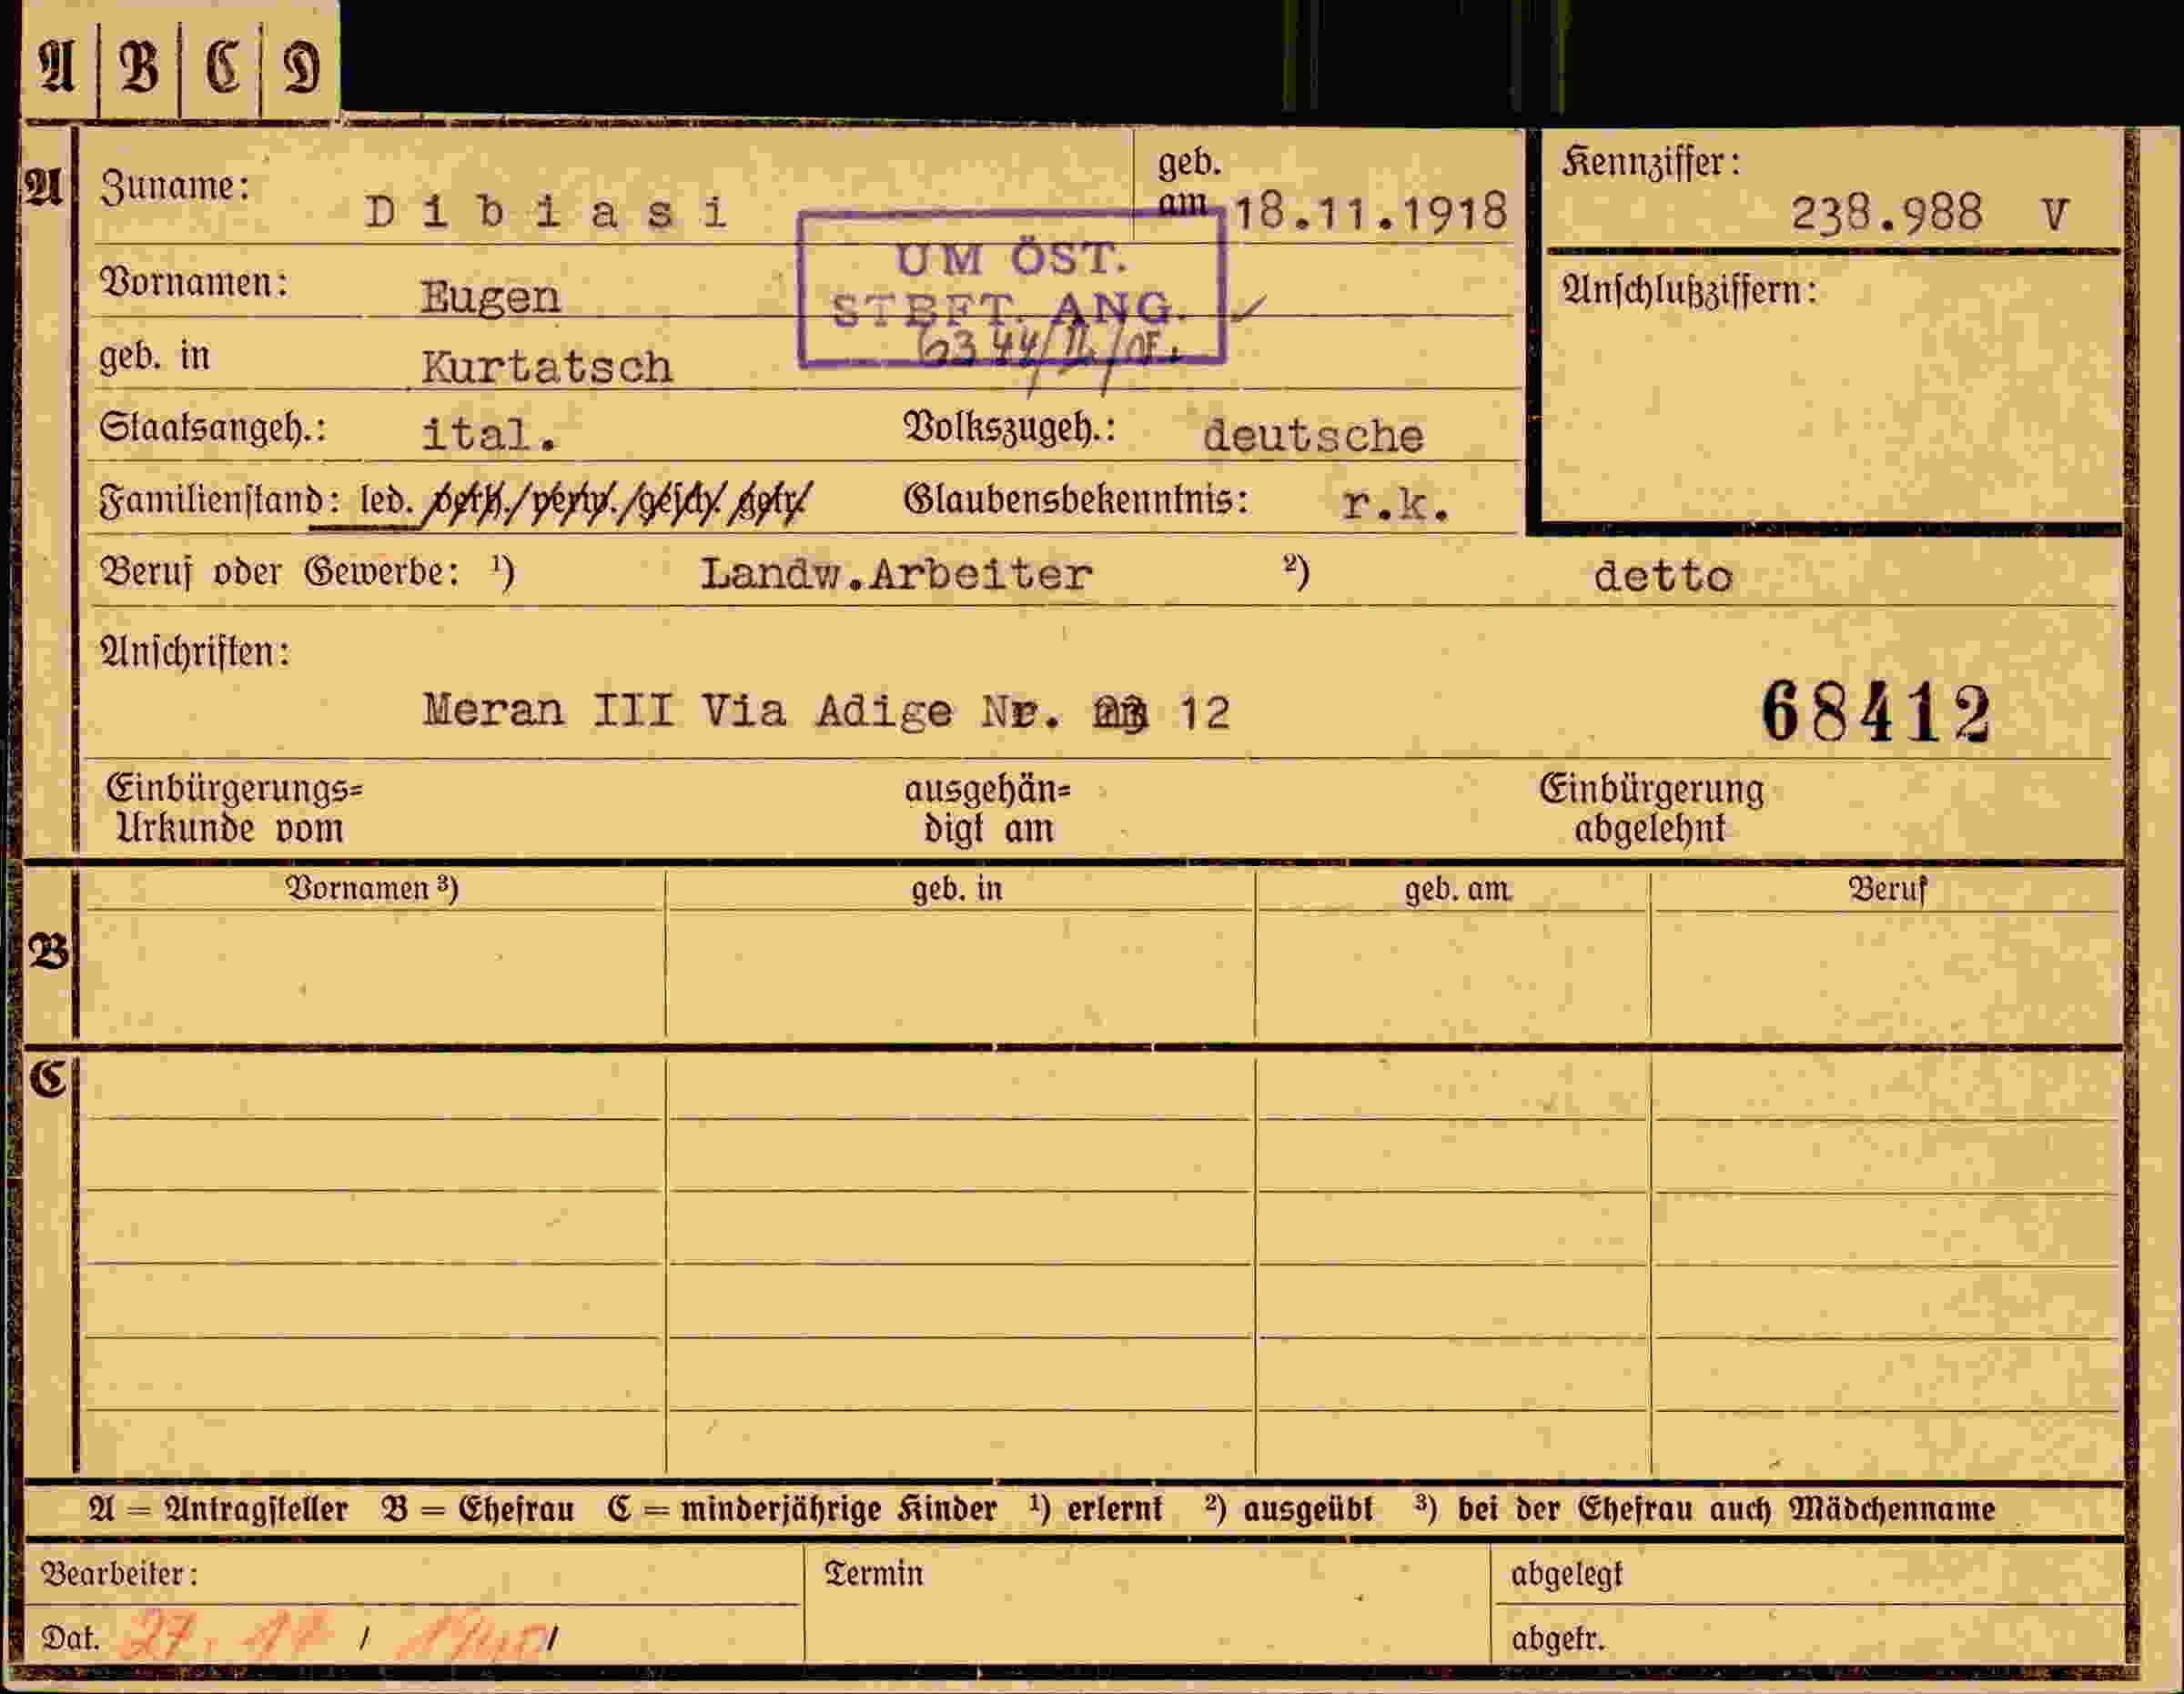 A B C D
A Zuname: Dibiasi geb. am 18.11.1918 Kennziffer: 238.988 V
UM ÖST.
STBFT. ANG.
Vornamen: Eugen Anschlußziffern:
geb. in Kurtatsch
Staatsangeh.: ital. Volkszugeh.: deutsche
Familienstand: led. Glaubensbekenntnis: r.k.
Beruf oder Gewerbe: ¹) Landw.Arbeiter ²) detto
Anschriften:
Meran III Via Adige Nr. 12 68412
Einbürgerungs= ausgehän= Einbürgerung
Urkunde vom digt am abgelehnt
Vornamen ³) geb. in geb. am Beruf
B
C
A = Antragsteller B = Ehefrau C = minderjährige Kinder ¹) erlernt ²) ausgeübt ³) bei der Ehefrau auch Mädchenname
Bearbeiter: Termin abgelegt
Dat. / / abgetr.